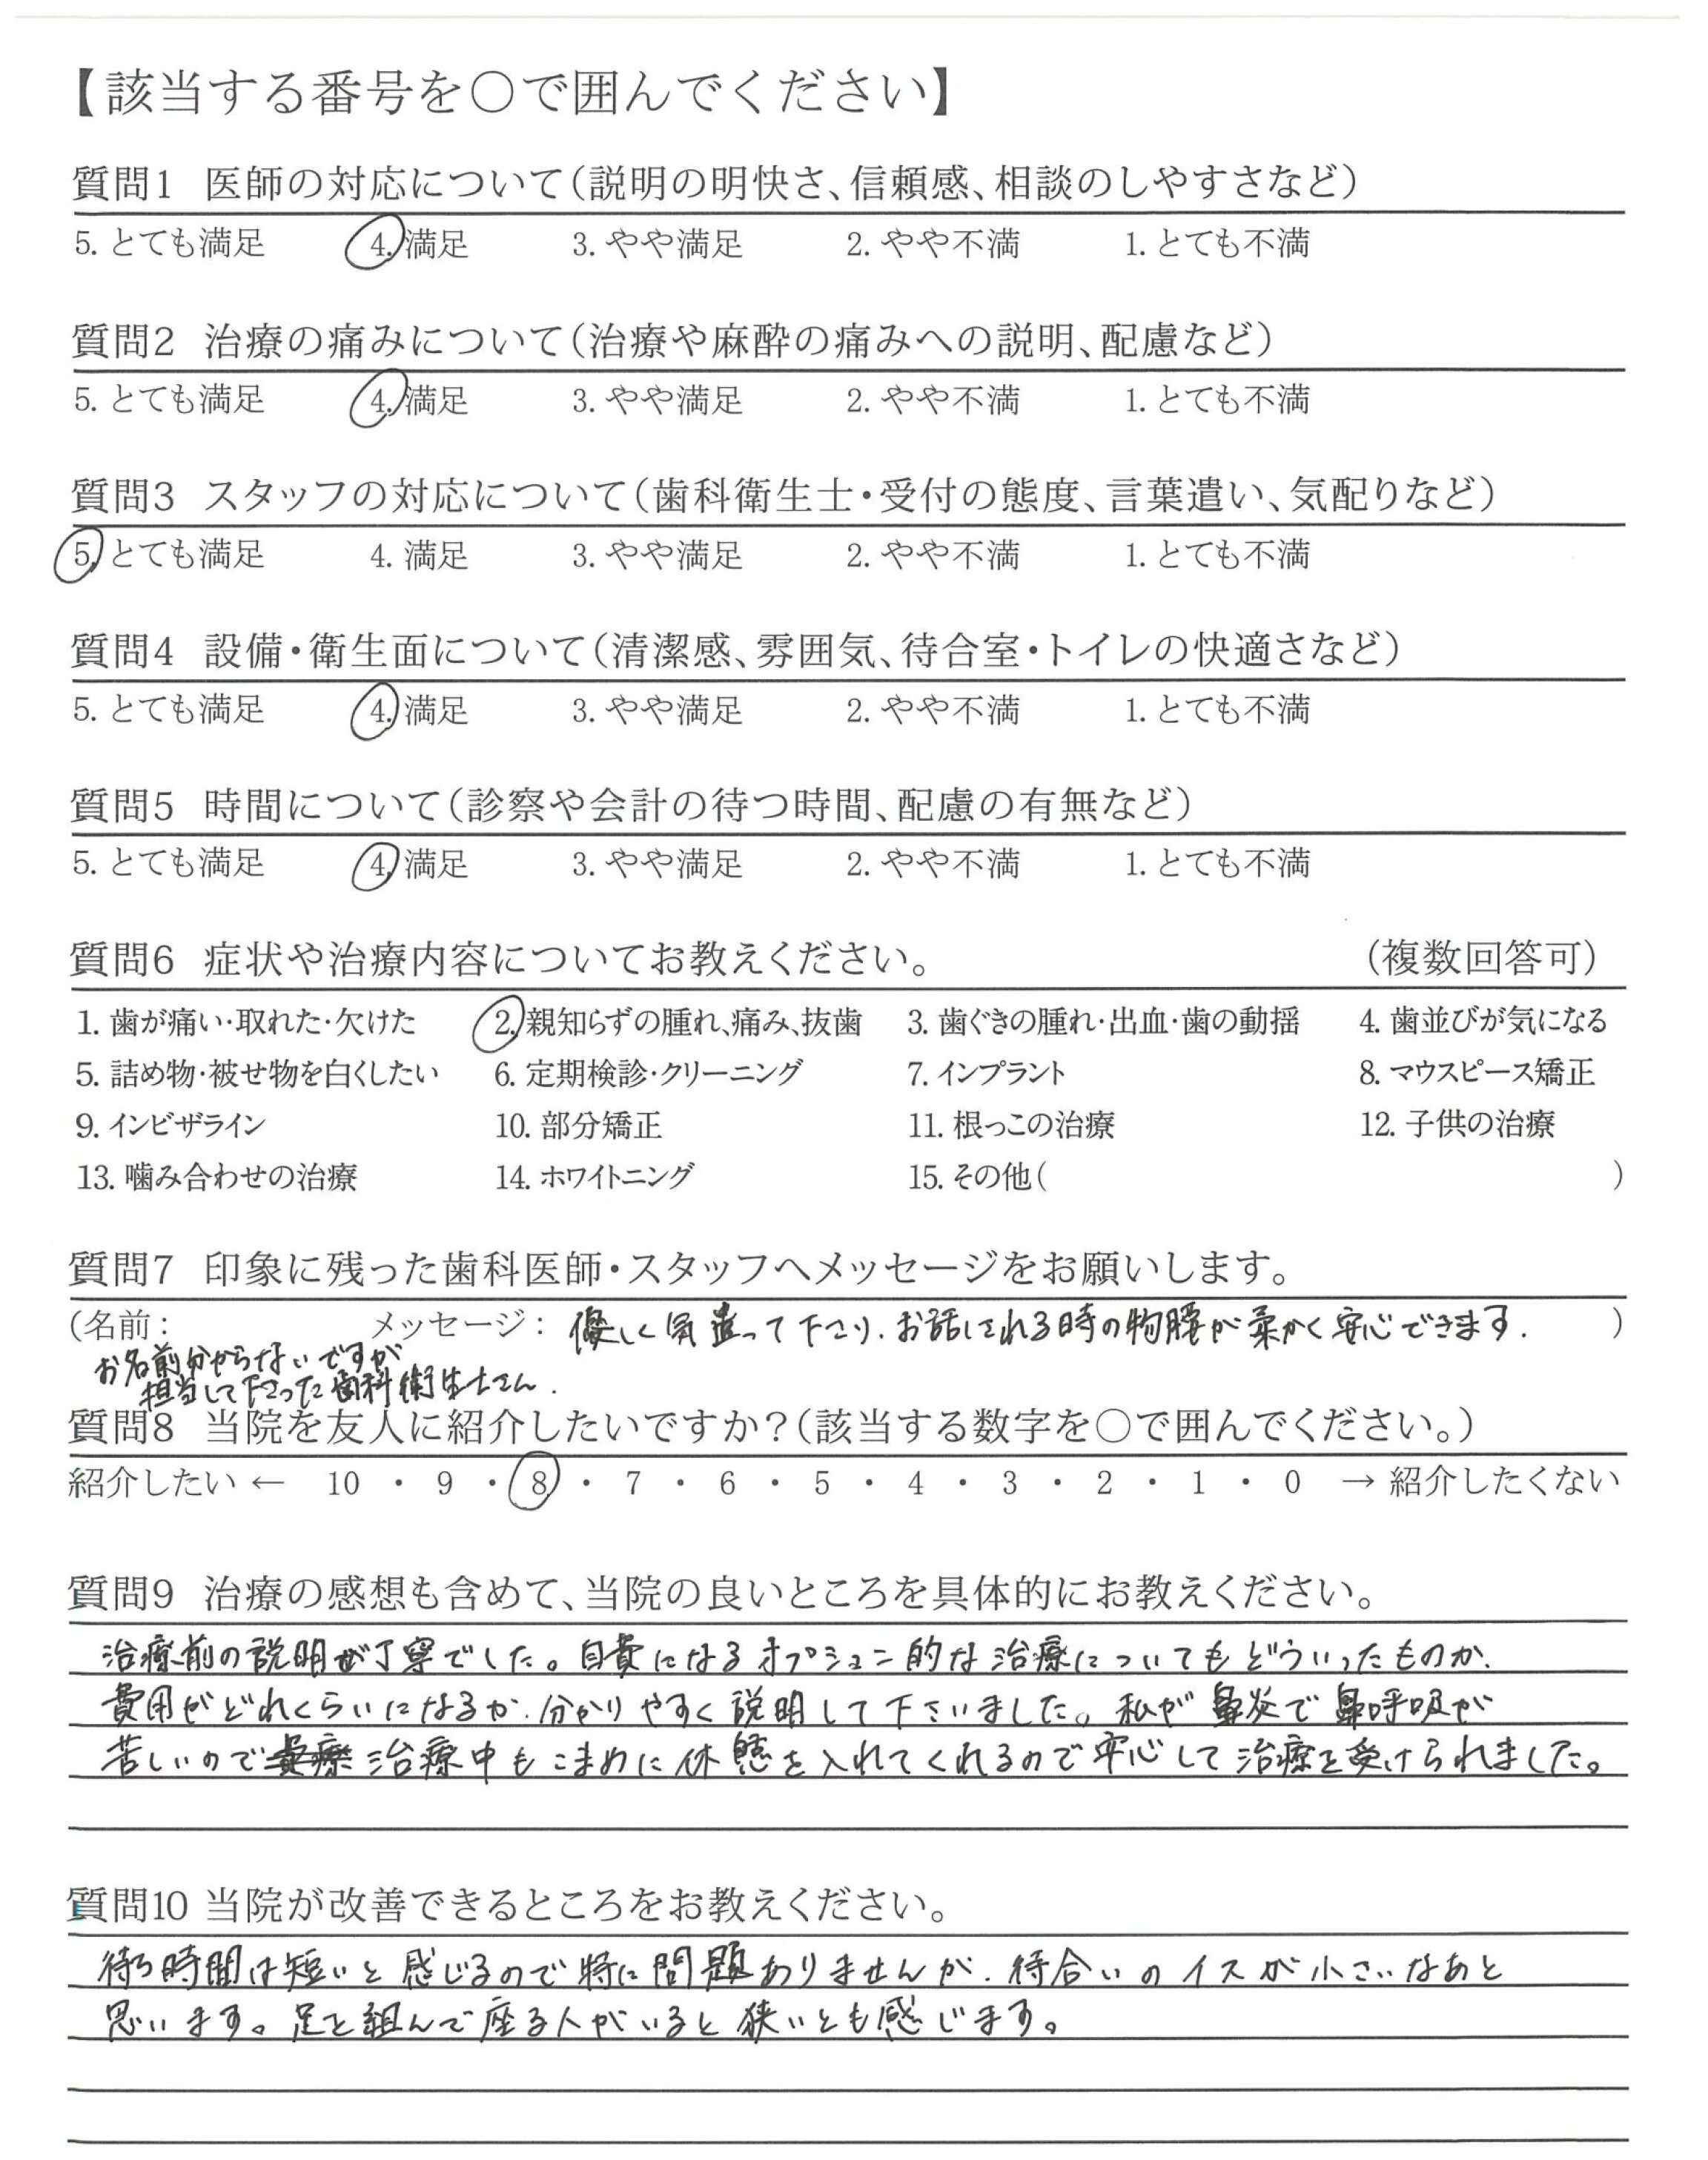 【該当する番号を〇で囲んでください】
質問1 医師の対応について(説明の明快さ、信頼感、相談のしやすさなど)
5. とても満足 4. 満足 3. やや満足 2. やや不満 1. とても不満
質問2 治療の痛みについて(治療や麻酔の痛みへの説明、配慮など)
5. とても満足 4. 満足 3. やや満足 2. やや不満 1. とても不満
質問3 スタッフの対応について(歯科衛生士・受付の態度、言葉遣い、気配りなど)
5. とても満足 4. 満足 3. やや満足 2. やや不満 1. とても不満
質問4 設備・衛生面について(清潔感、雰囲気、待合室・トイレの快適さなど)
5. とても満足 4. 満足 3. やや満足 2. やや不満 1. とても不満
質問5 時間について(診察や会計の待つ時間、配慮の有無など)
5. とても満足 4. 満足 3. やや満足 2. やや不満 1. とても不満
質問6 症状や治療内容についてお教えください。 (複数回答可)
1. 歯が痛い・取れた・欠けた 2. 親知らずの腫れ、痛み、抜歯 3. 歯ぐきの腫れ・出血・歯の動揺 4. 歯並びが気になる
5. 詰め物・被せ物を白くしたい 6. 定期検診・クリーニング 7. インプラント 8. マウスピース矯正
9. インビザライン 10. 部分矯正 11. 根っこの治療 12. 子供の治療
13. 噛み合わせの治療 14. ホワイトニング 15. その他( )
質問7 印象に残った歯科医師・スタッフへメッセージをお願いします。
(名前: メッセージ: 優しく気遣って下さり、お話しされる時の物腰が柔かく安心できます. )
お名前分からないですが
担当して下さった歯科衛生士さん.
質問8 当院を友人に紹介したいですか?(該当する数字を〇で囲んでください。)
紹介したい ← 10 ・ 9 ・ 8 ・ 7 ・ 6 ・ 5 ・ 4 ・ 3 ・ 2 ・ 1 ・ 0 → 紹介したくない
質問9 治療の感想も含めて、当院の良いところを具体的にお教えください。
治療前の説明が丁寧でした。自費になるオプション的な治療についてもどういったものか、
費用がどれくらいになるか、分かりやすく説明して下さいました。私が鼻炎で鼻呼吸が
苦しいので治療中もこまめに休憩を入れてくれるので安心して治療を受けられました。
質問10 当院が改善できるところをお教えください。
待つ時間は短いと感じるので特に問題ありませんが、待合いのイスが小さいなあと
思います。足を組んで座る人がいると狭いとも感じます。